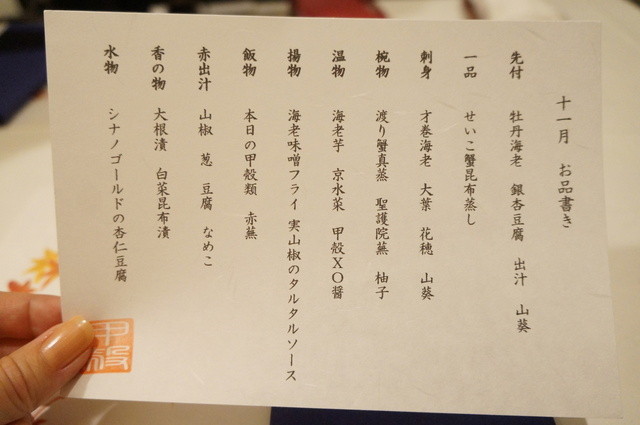 十一月 お品書き
先付 牡丹海老 銀杏豆腐 出汁 山葵
一品 せいこ蟹昆布蒸し
刺身 才巻海老 大葉 花穂 山葵
椀物 渡り蟹真蒸 聖護院蕪 柚子
温物 海老芋 京水菜 甲殻XO醤
揚物 海老味噌フライ 実山椒のタルタルソース
飯物 本日の甲殻類 赤蕪
赤出汁 山椒 葱 豆腐 なめこ
香の物 大根漬 白菜昆布漬
水物 シナノゴールドの杏仁豆腐
甲殻